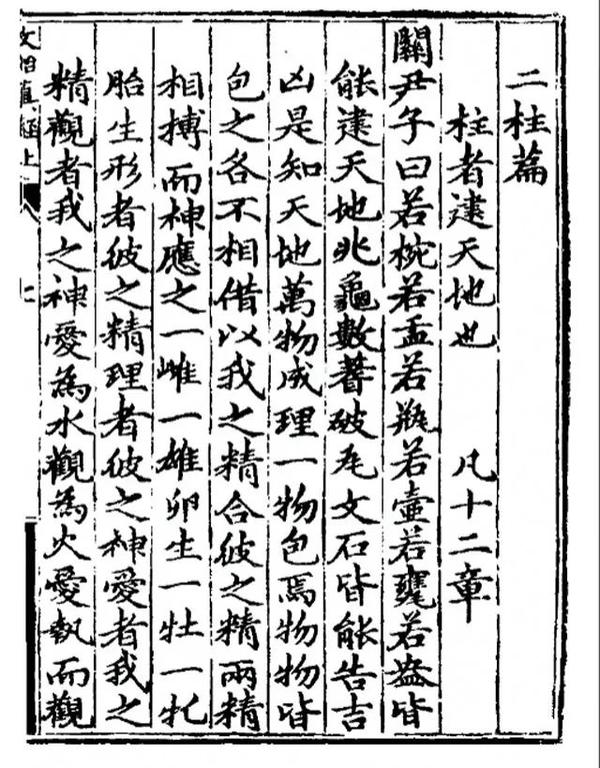 二柱篇
柱者建天地也 凡十二章
關尹子曰若椀若盂若瓶若壺若甕若盎皆
能建天地兆龜數蓍破瓦文石皆能告吉
凶是知天地萬物成理一物包焉物物皆
包之各不相借以我之精合彼之精兩精
相摶而神應之一雌一雄卵生一牡一牝
胎生形者彼之精理者彼之神愛者我之
精觀者我之神愛為水觀為火愛執而觀
文始真經上